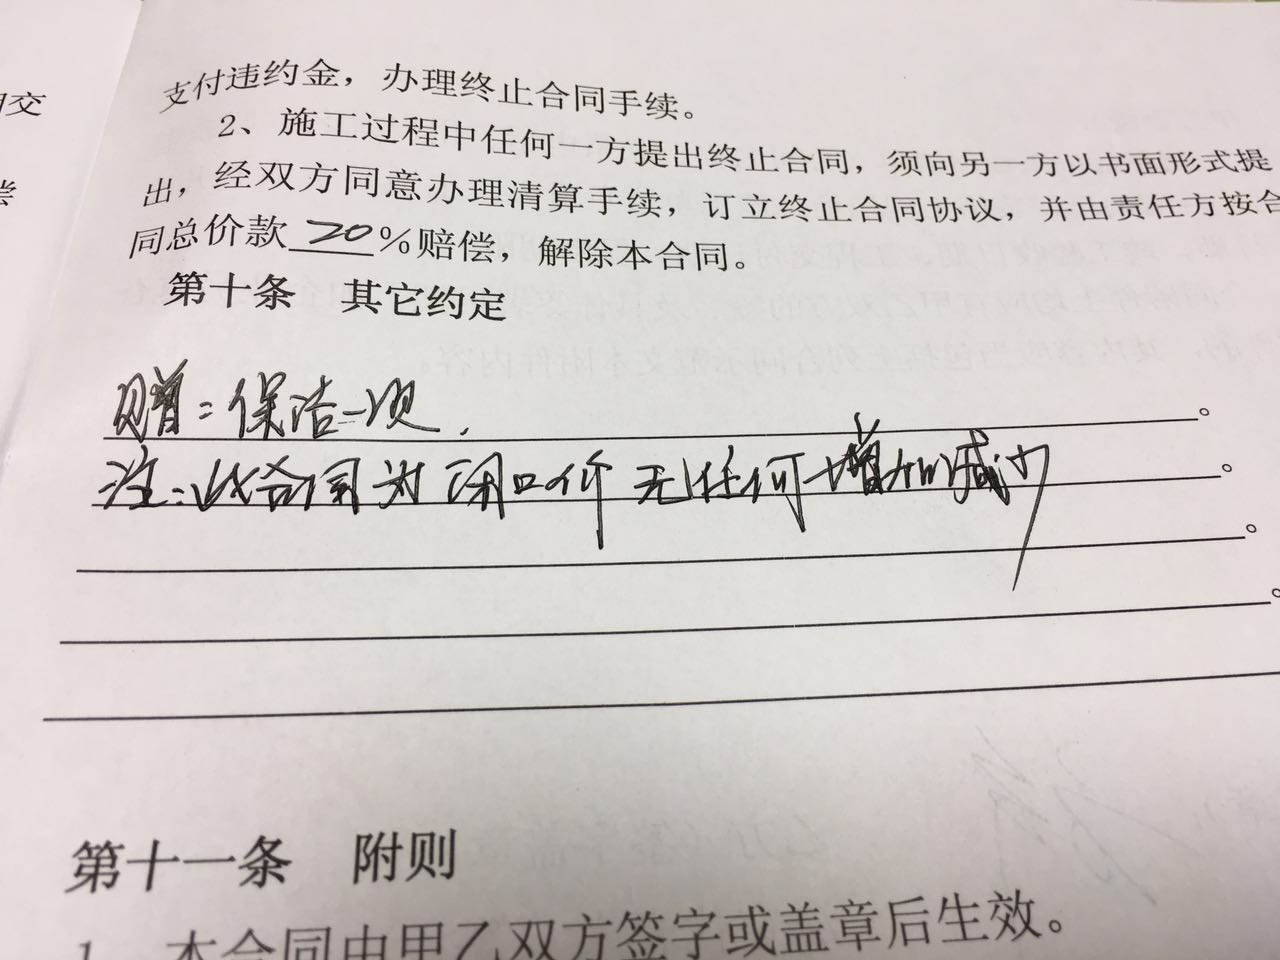 支付违约金，办理终止合同手续。
2、施工过程中任何一方提出终止合同，须向另一方以书面形式提
出，经双方同意办理清算手续，订立终止合同协议，并由责任方按合
同总价款20%赔偿，解除本合同。
第十条 其它约定
赠：保洁一项。
注：此合同为闭口价 无任何增加减少。
。
。
第十一条 附则
1、本合同由甲乙双方签字或盖章后生效。